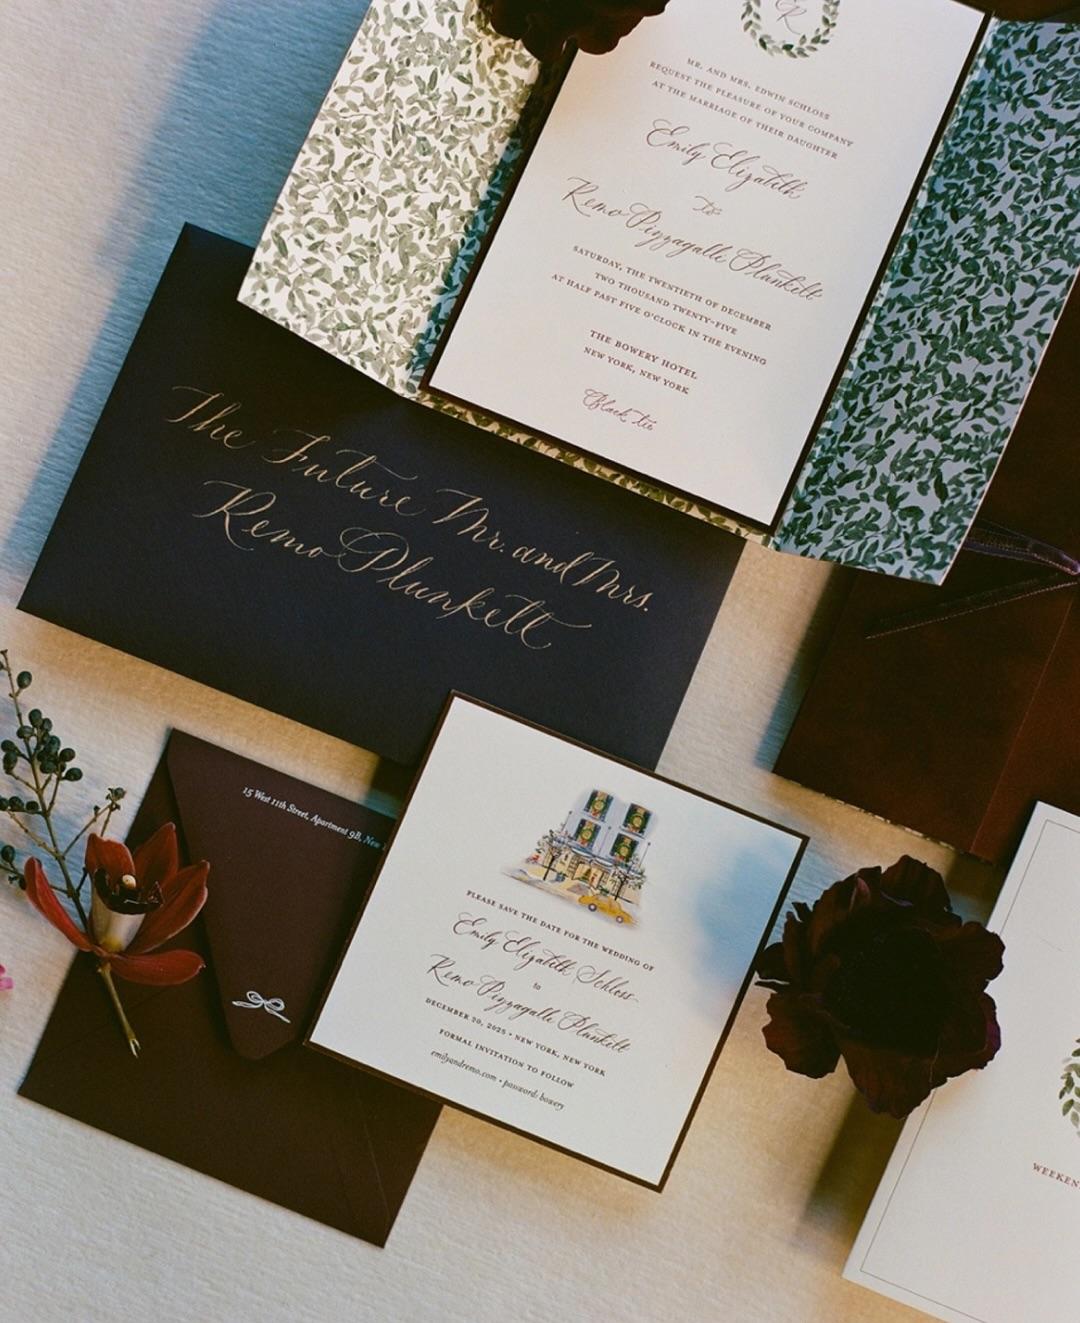 R
MR. AND MRS. EDWIN SCHLOSS
REQUEST THE PLEASURE OF YOUR COMPANY
AT THE MARRIAGE OF THEIR DAUGHTER
Emily Elizabeth
to
Remo Pizzagalli Plunkett
SATURDAY, THE TWENTIETH OF DECEMBER
TWO THOUSAND TWENTY-FIVE
AT HALF PAST FIVE O'CLOCK IN THE EVENING
THE BOWERY HOTEL
NEW YORK, NEW YORK
Black tie
The Future Mr. and Mrs.
Remo Plunkett
15 West 11th Street, Apartment 9B, New
PLEASE SAVE THE DATE FOR THE WEDDING OF
Emily Elizabeth Schloss
to
Remo Pizzagalli Plunkett
DECEMBER 20, 2025 • NEW YORK, NEW YORK
FORMAL INVITATION TO FOLLOW
emilyandremo.com • password: bowery
WEEKEN